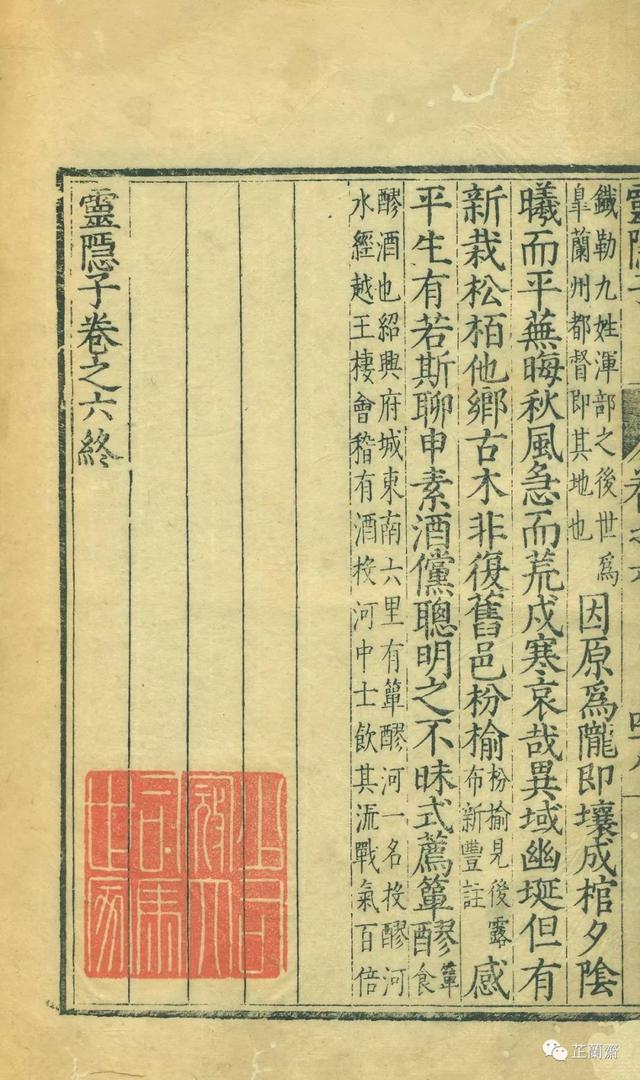 靈隱子
卷之六
鐵勒九姓渾部之後世爲
臯蘭州都督即其地也
因原爲隴即壤成棺夕陰
曦而平蕪晦秋風急而荒戍寒哀哉異域幽埏但有
新栽松栢他鄉古木非復舊邑枌榆
枌榆見後露
布新豐註
感
平生有若斯聊申素酒儻聰明之不昧式薦簞醪
簞
食
醪酒也紹興府城東南六里有簞醪河一名投醪河
水經越王棲會稽有酒投河中士飲其流戰氣百倍
靈隱子卷之六終
芷蘭齋